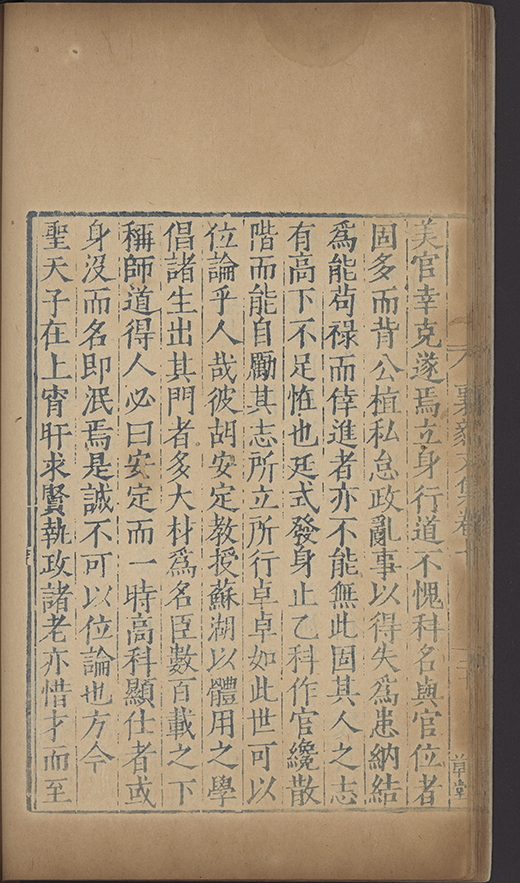 美官幸克遂焉立身行道不愧科名與官位者
固多而背公植私怠政亂事以得失爲患納結
爲能茍禄而倖進者亦不能無此固其人之志
有高下不足恠也廷式發身止乙科作官纔散
階而能自勵其志所立所行卓卓如此世可以
位論乎人哉彼胡安定教授蘇湖以體用之學
倡諸生出其門者多大材爲名臣數百載之下
稱師道得人必曰安定而一時高科顯仕者或
身没而名即泯焉是誠不可以位論也方今
聖天子在上宵旰求賢執政諸老亦惜才而至
襄毅文集卷
草堂